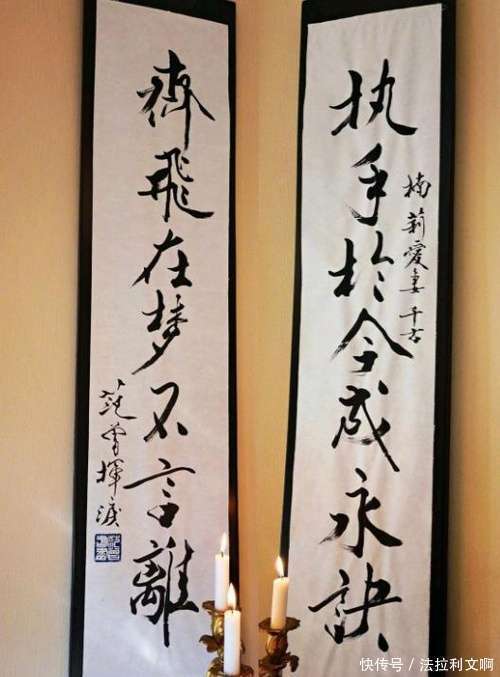 楠莉愛妻千古
执手於今成永訣
齊飛在梦不言離
范曾揮淚
快传号 / 法拉利文啊